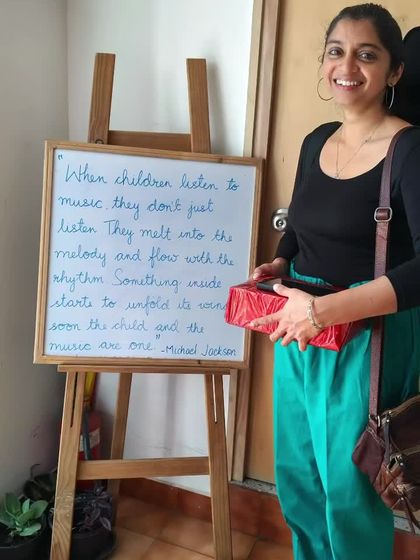 "When children listen to
music, they don't just
listen. They melt into the
melody and flow with the
rhythm. Something inside
starts to unfold its wings
soon the child and the
music are one." -Michael Jackson